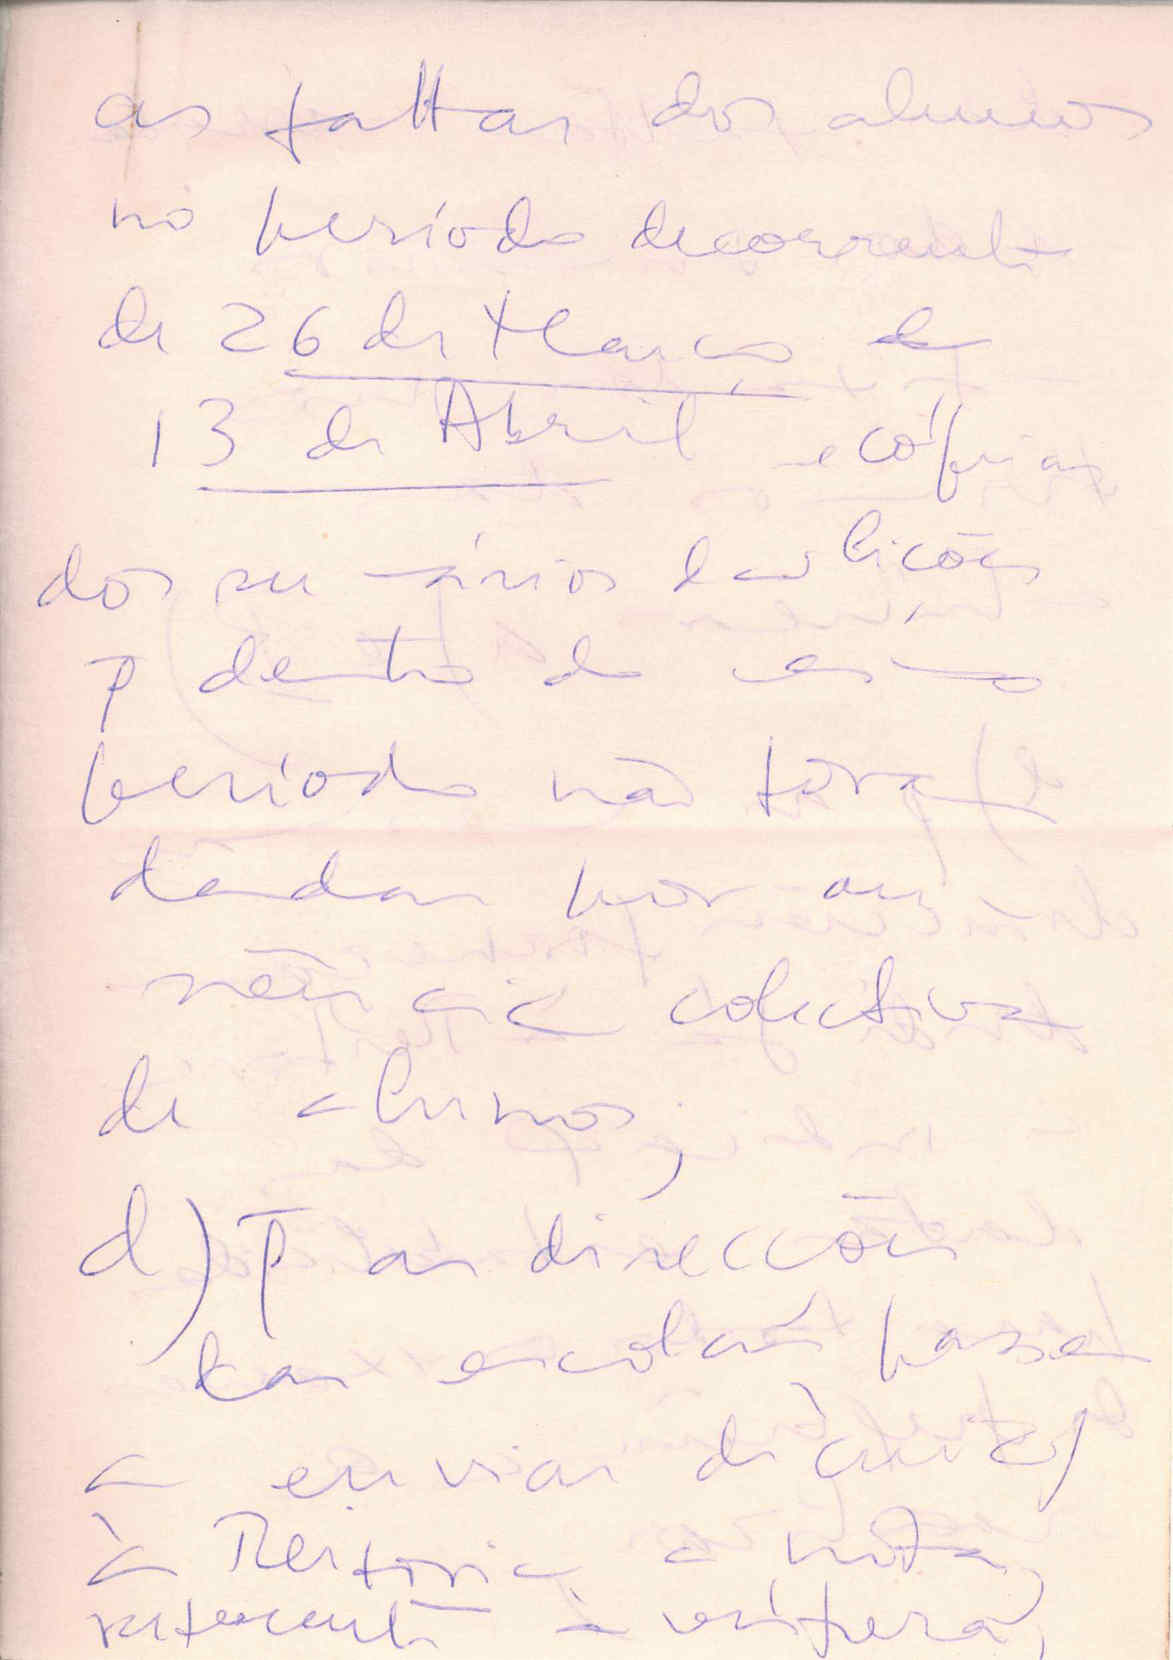 as faltas dos alunos
no período decorrente
de 26 de Março a
13 de Abril e cópias
dos sumários das lições
q̄ dentro do mesmo
período não foram
dadas por au
sência colectiva
de alunos;
d) q̄ as direcções
das escolas passem
a enviar diàriamente,
à Reitoria a nota,
referente à véspera,